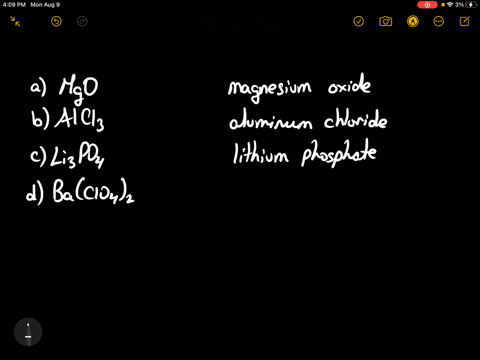 4:09 PM Mon Aug 9 3%
a) MgO magnesium oxide
b) AlCl3 aluminum chloride
c) Li3PO4 lithium phosphate
d) Ba(ClO4)2